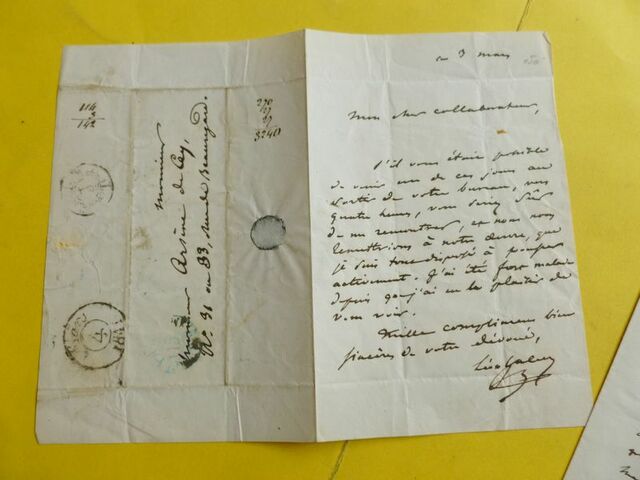 ce 3 mars
Mon cher collaborateur,
S'il vous était possible
de venir un de ces jours au
sortir de votre bureau, vers
quatre heures, vous seriez sûr
de me rencontrer, et nous nous
remettrions à notre œuvre, que
je suis tout disposé à pousser
activement. J'ai été fort malade
depuis que j'ai eu le plaisir de
vous voir.
Mille complimens bien
sincères de votre dévoué,
Monsieur
Monsieur Arsène de Cey,
N° 31 ou 33, rue de Beauregard.
114
142
270
27
27
3240